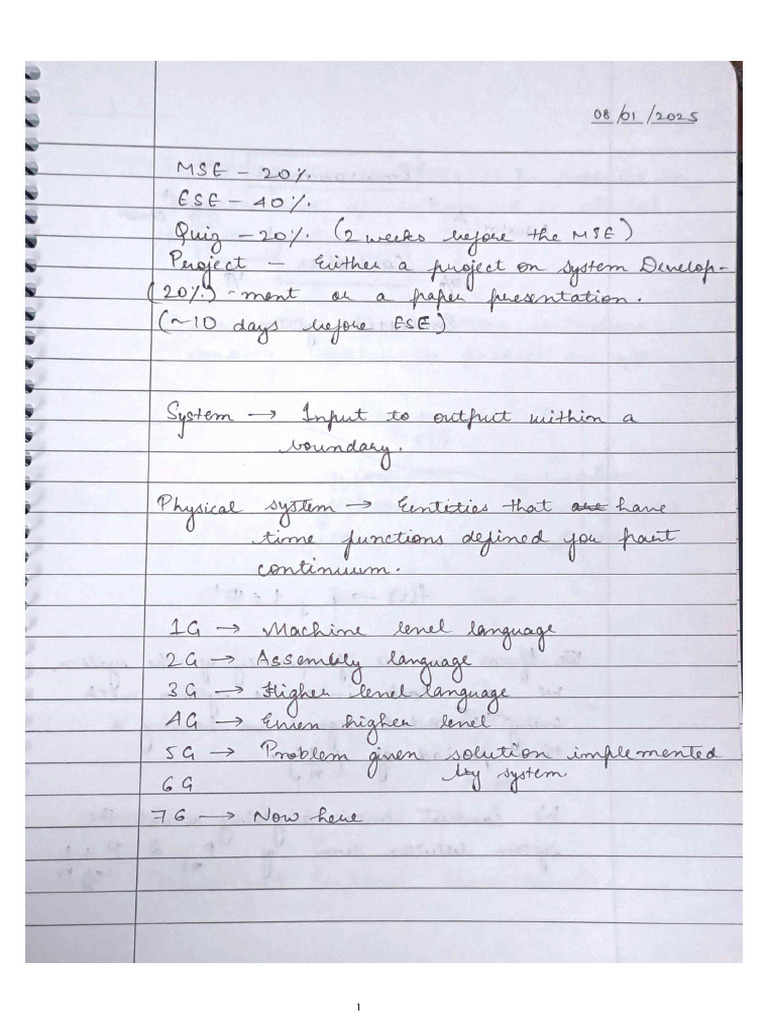 08/01/2025
MSE - 20%.
ESE - 40%.
Quiz - 20%. (2 weeks before the MSE)
Project - Either a project on system Develop-
(20%) -ment or a paper presentation.
(~10 days before ESE)
System → Input to output within a
boundary.
Physical system → Eentities that are have
time functions defined for past
continuum.
1G → Machine level language
2G → Assembly language
3G → Higher level language
4G → Even higher level
5G → Problem given solution implemented
by system.
6G
7G → Now here
1